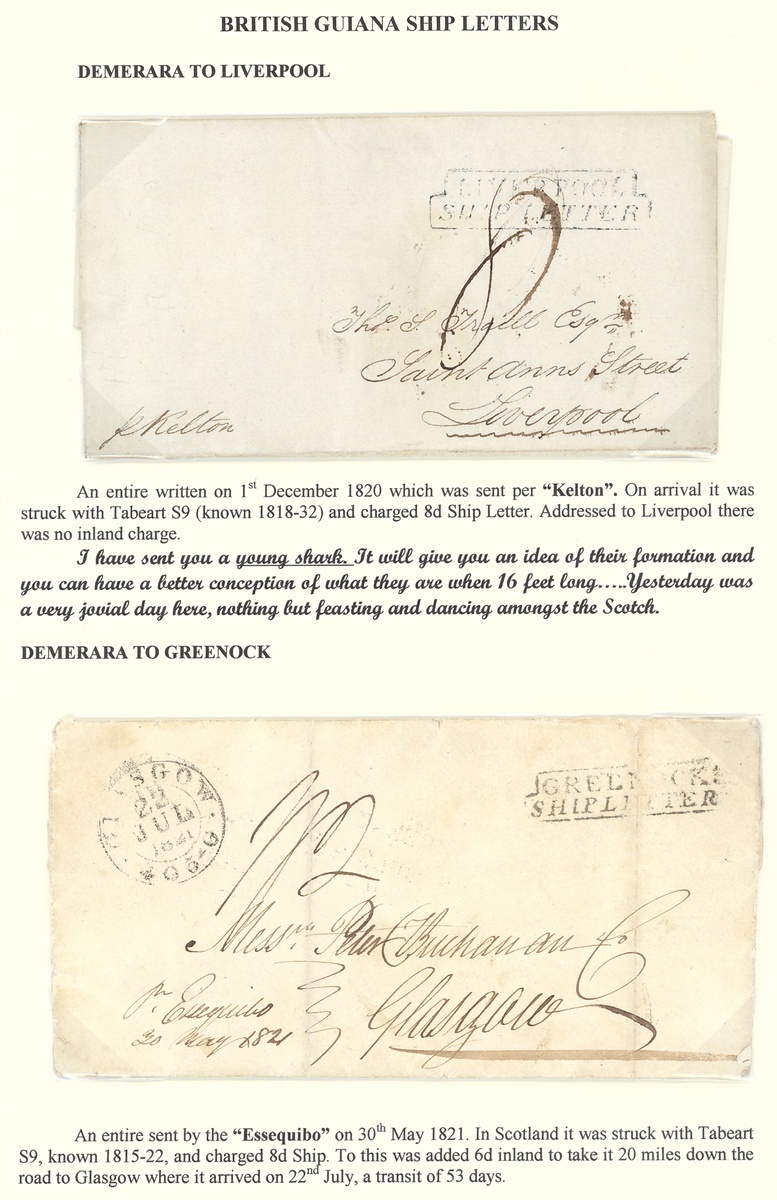 BRITISH GUIANA SHIP LETTERS
DEMERARA TO LIVERPOOL
LIVERPOOL
SHIP LETTER
8
Thos. S. Traill Esqre
Saint Anns Street
Liverpool
p Kelton
An entire written on 1st December 1820 which was sent per "Kelton". On arrival it was
struck with Tabeart S9 (known 1818-32) and charged 8d Ship Letter. Addressed to Liverpool there
was no inland charge.
I have sent you a young shark. It will give you an idea of their formation and
you can have a better conception of what they are when 16 feet long.....Yesterday was
a very jovial day here, nothing but feasting and dancing amongst the Scotch.
DEMERARA TO GREENOCK
GLASGOW
22
JUL
1821
GREENOCK
SHIP LETTER
1/2
Messrs Peter Buchanan Co
Glasgow
Pr Essequibo
30 May 1821
An entire sent by the "Essequibo" on 30th May 1821. In Scotland it was struck with Tabeart
S9, known 1815-22, and charged 8d Ship. To this was added 6d inland to take it 20 miles down the
road to Glasgow where it arrived on 22nd July, a transit of 53 days.